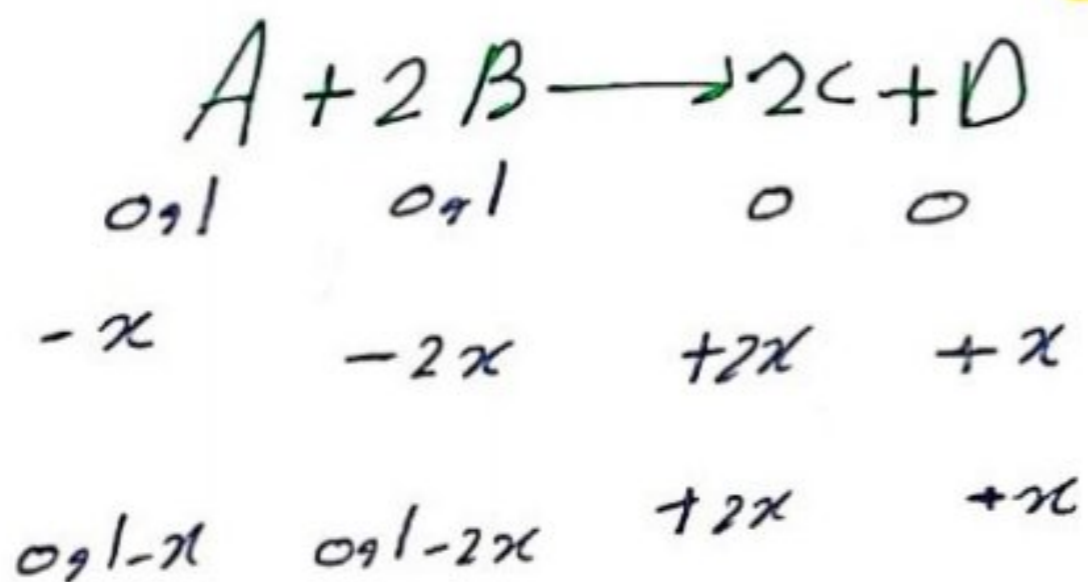 A + 2 B → 2C + D
0,1 0,1 0 0
-x -2x +2x +x
0,1-x 0,1-2x +2x +x